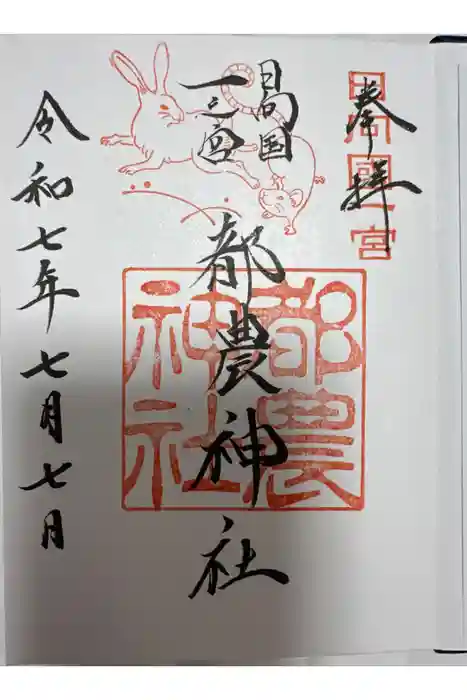 奉拝
日向國一宮
日向国
一之宮
都農神社
都農
神社
令和七年七月七日